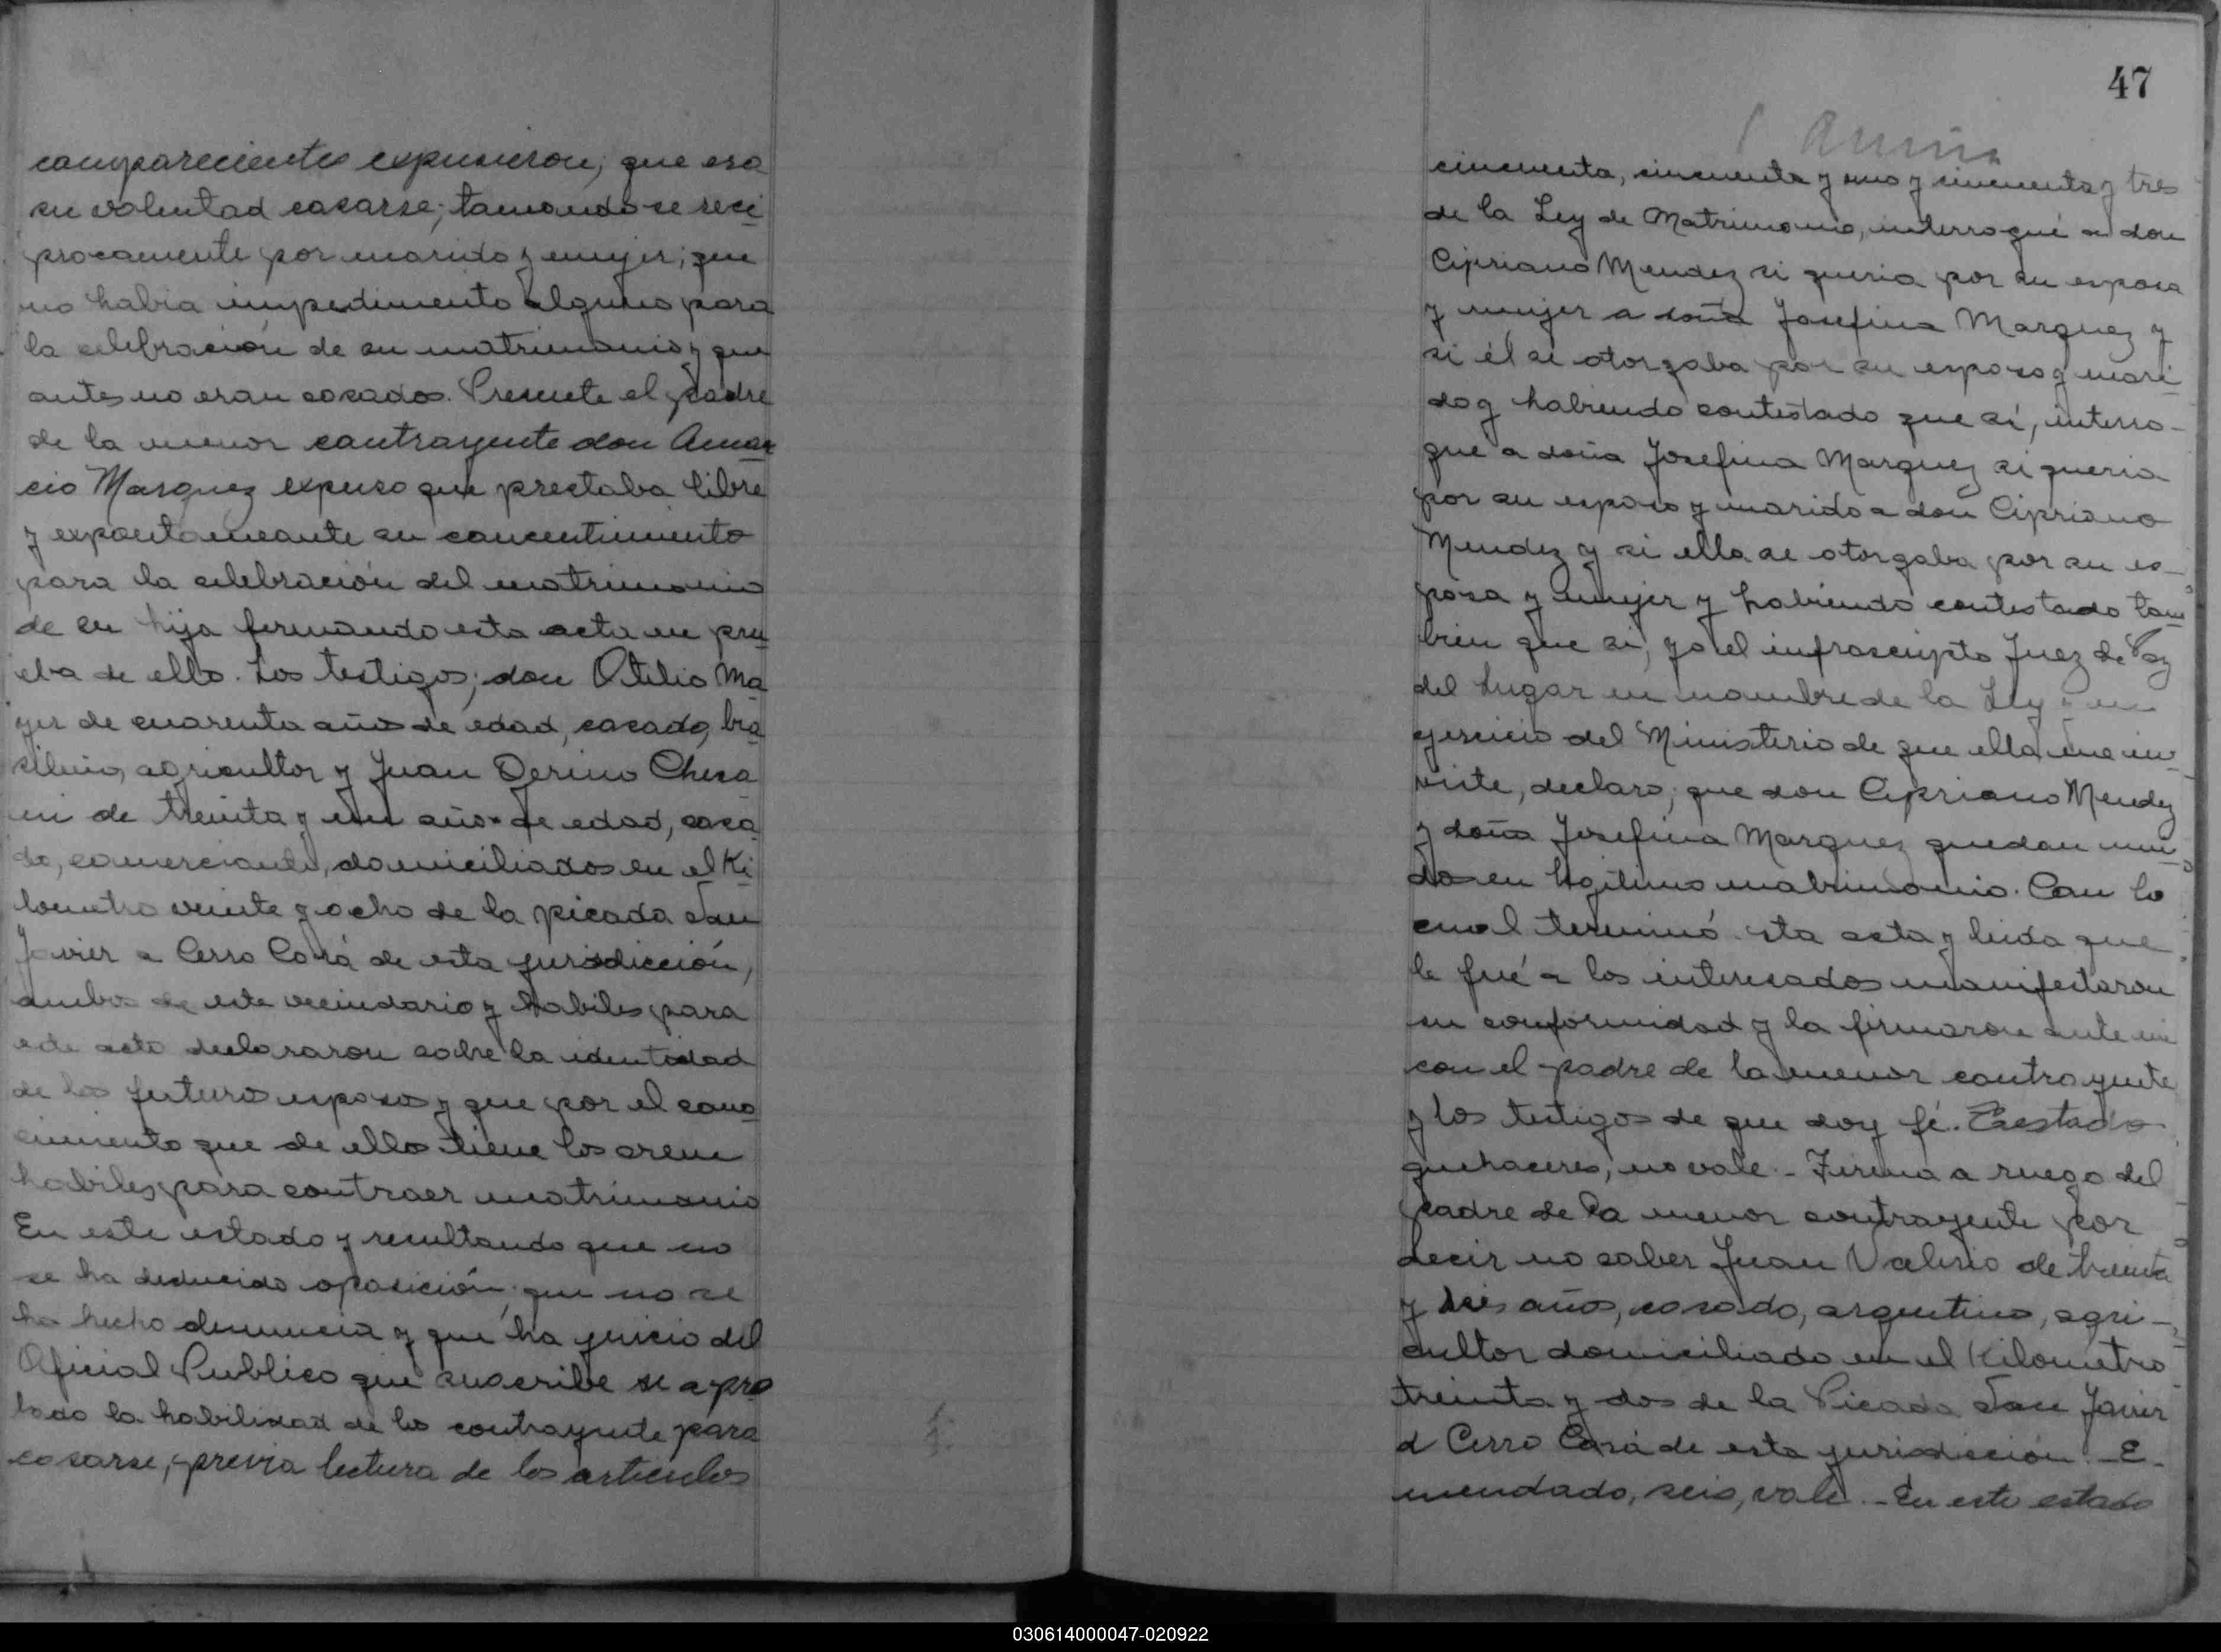 comparecientes expusieron; que era
su voluntad casarse; tamando-se reci
procamente por marido y mujer; que
no habia impedimento alguno para
la celebración de su matrimonio y que
antes no eran casados. Presente el padre
de la menor contrayente don Aman
cio Marquez expuso que prestaba libre
y expontameante su concentimiento
para la celebración del matrimonio
de su hija firmando esta acta en pru
eba de ello. Los testigos; don Otilio Ma
yer de cuarenta años de edad, casado, bra
silenio, agricultor y Juan Derino Chesa
ni de treinta y un años de edad, casa
do, comerciante, domiciliados en el Ki
lometro veinte y ocho de la picada San
Javier a Cerro Corá de esta jurisdicción,
ambos de este vecindario y habiles para
este acto declararon sobre la identidad
de los futuros esposos y que por el cono
cimiento que de ellos tiene los creen
habiles para contraer matrimonio
En este estado y resultando que no
se ha deducido oposición; que no se
ha hecho denuncia y que ha juicio del
Oficial Publico que suscribe se a pro
bado la habilidad de los contrayente para
casarse, previa lectura de los articulos
47
cincuenta, cincuenta y uno y cincuenta y tres
de la Ley de Matrimonio, interrogué a don
Cipriano Mendez si queria por su esposa
y mujer a doña Josefina Marquez y
si él se otorgaba por su esposo y mari
do y habiendo contestado que sí, interro-
gue a doña Josefina Marquez si queria
por su esposo y marido a don Cipriano
Mendez y si ella se otorgaba por su es-
posa y mujer y habiendo contestado tam
bien que si, yo el infrascripto Juez de Paz
del Lugar en nombre de la Ley en
ejercicio del Ministerio de que ella me in-
viste, declaro; que don Cipriano Mendez
y doña Josefina Marquez quedan uni
dos en legitimo matrimonio. Con lo
cual terminó esta acta y leida que
le fué a los interesados manifestaron
su conformidad y la firmaron ante mi
con el padre de la menor contrayente
y los testigos de que doy fé. Testado
quehaceres, no vale. - Firma a ruego del
padre de la menor contrayente por
decir no saber Juan Valerio de treinta
y seis años, casado, argentino, agri-
cultor domiciliado en el Kilometro
treinta y dos de la Picada San Javier
a Cerro Corá de esta jurisdicción. - E-
mendado, seis, vale. - En este estado
030614000047-020922